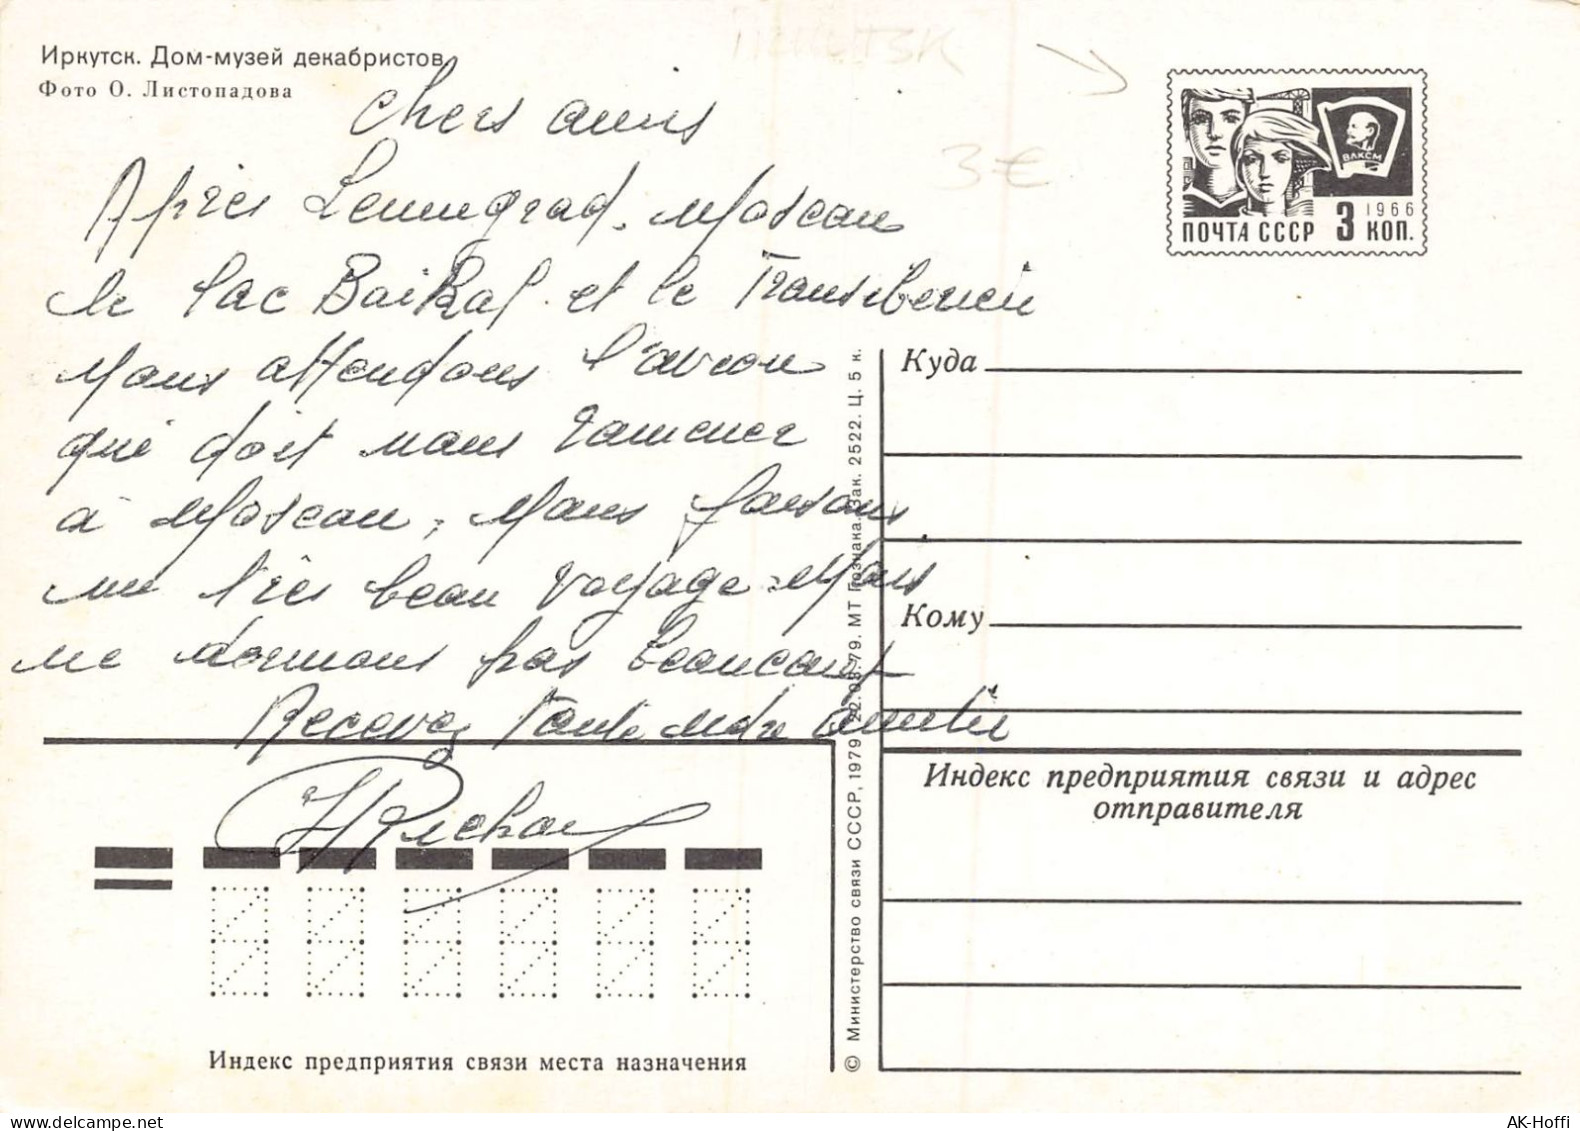 Иркутск. Дом-музей декабристов
Фото О. Листопадова
3 €
chers amis
Après Leningrad. Moscou
le lac Baikal. et le Transiberien
Nous attendons l'avion
qui doit nous ramener
à Moscou, Nous faisons
un très beau voyage. Nous
ne dormons pas beaucoup
Recevez toute notre amitié
ВЛКСМ
1966
ПОЧТА СССР 3 КОП.
Куда
Кому
Индекс предприятия связи и адрес
отправителя
Индекс предприятия связи места назначения
© Министерство связи СССР, 1979 22.03.79. МТ Гознака. Зак. 2522. Ц. 5 к.
AK-Hoffi